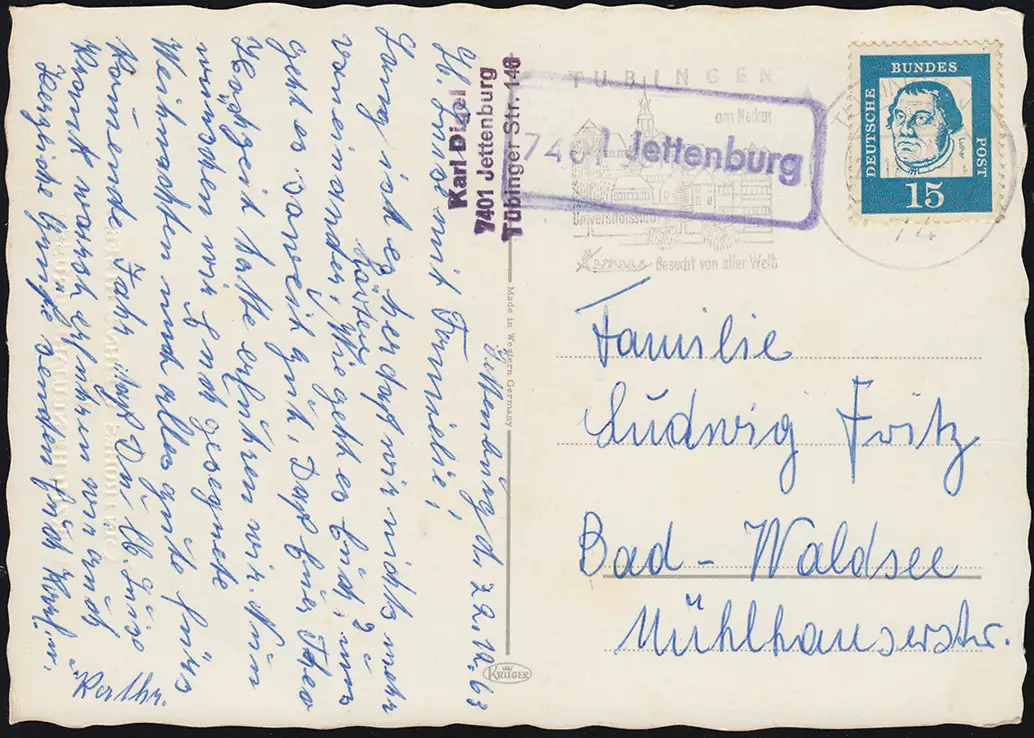 Jettenburg d. 22.12.63
Ihr Lieben mit Familie!
Lang ist es her daß wir nichts mehr
voneinander hörten.
Wie geht es Euch, uns
geht es soweit gut. Daß Euer Theo
Hochzeit hatte erfuhren wir. Nun
wünschen wir Euch gesegnete
Weihnachten und alles gute fürs
kommende Jahr.
Herzliche Grüße senden Euch Karl u.
Karl Digel
7401 Jettenburg
Tübinger Str. 140
Made in Western Germany
KRÜGER
TÜBINGEN
am Neckar
Universitätsstadt
Besucht von aller Welt
7401 Jettenburg
74
DEUTSCHE
BUNDES
POST
Luther
15
Familie
Ludwig Fritz
Bad-Waldsee
Mühlhauserstr.